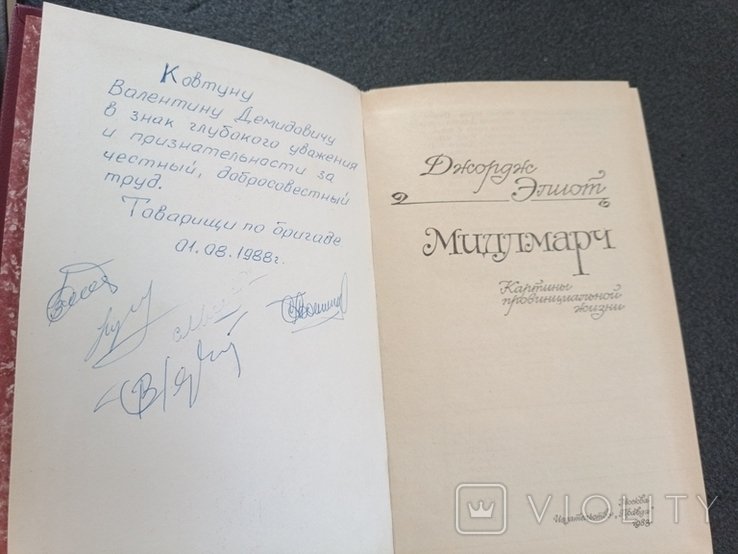 Ковтуну
Валентину Демидовичу
в знак глубокого уважения
и признательности за
честный, добросовестный
труд.
Товарищи по бригаде
01.08.1988г.
Джордж
Элиот
Миддмарч
Картины
провинциальной
жизни
Москва
Издательство „Правда"
1988
VIOLITY